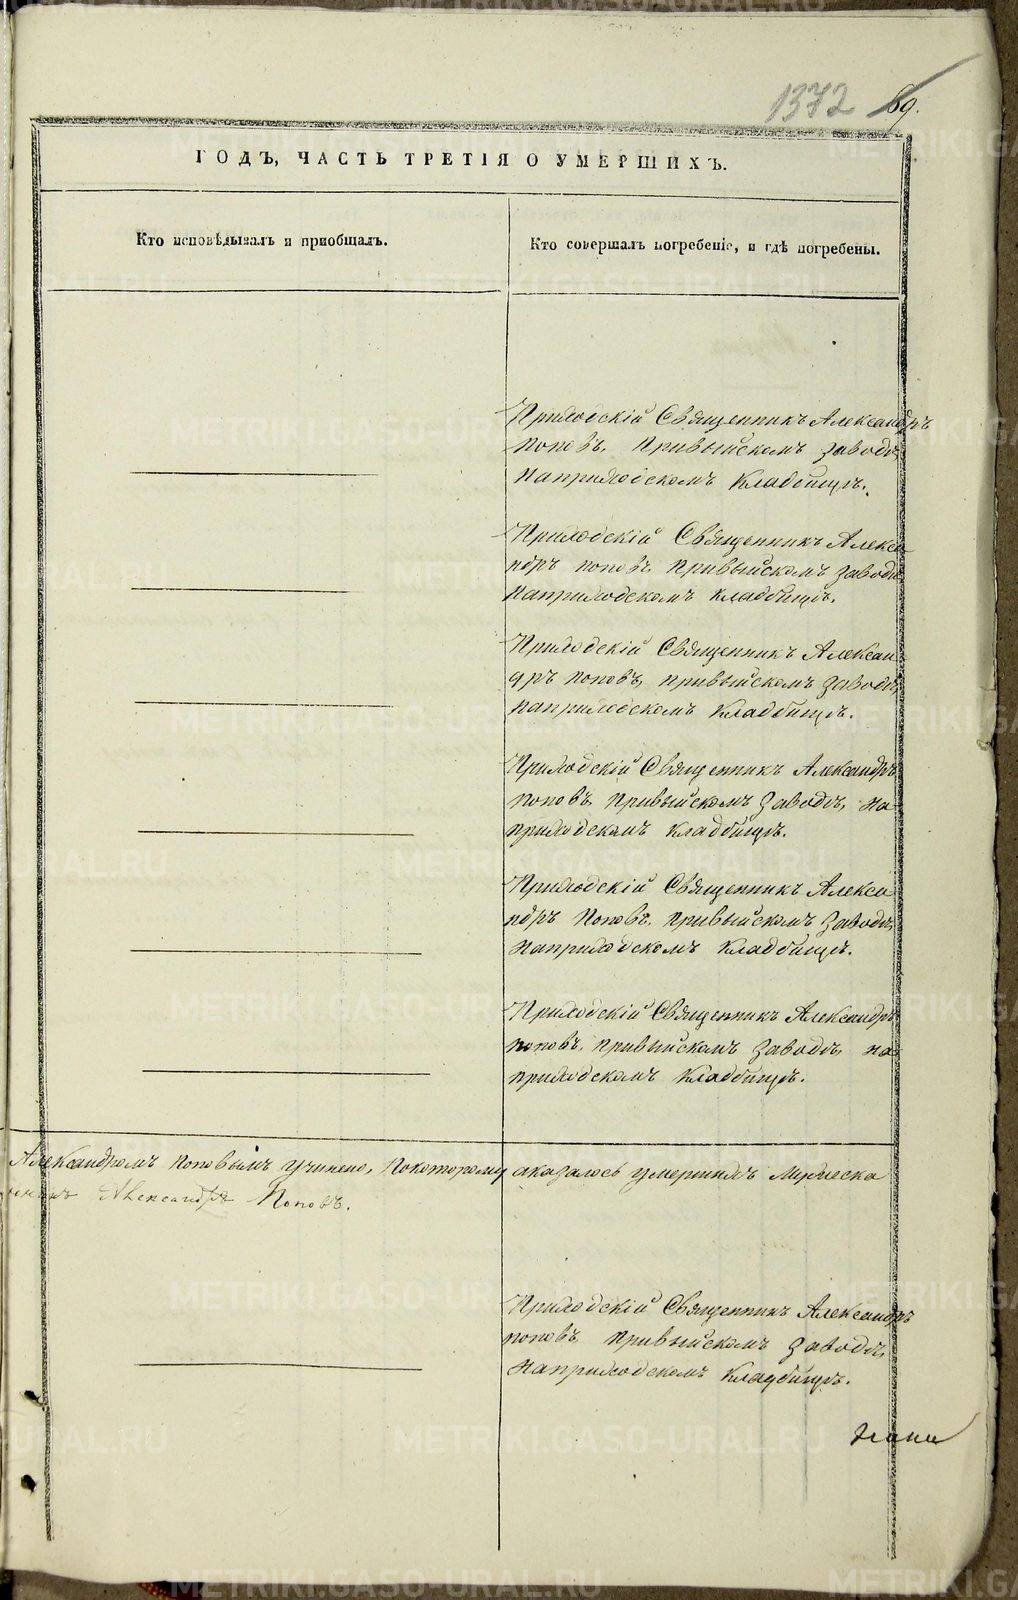 1372 69.
ГОДЪ, ЧАСТЬ ТРЕТІЯ О УМЕРШИХЪ.
Кто исповѣдывалъ и пріобщалъ.
Кто совершалъ погребеніе, и гдѣ погребены.
Приходскій Священникъ Александръ
Поповъ, Привыйскомъ Заводѣ,
Наприходскомъ Кладбищѣ.
Приходскій Священникъ Алекса
ндръ Поповъ, Привыйскомъ Заводѣ
Наприходскомъ Кладбищѣ.
Приходскій Священникъ Алексан
дръ Поповъ, Привыйскомъ Заводѣ,
Наприходскомъ Кладбищѣ.
Приходскій Священникъ Александръ
Поповъ, Привыйскомъ Заводѣ, на
приходскомъ Кладбищѣ.
Приходскій Священникъ Алекса
ндръ Поповъ, Привыйскомъ Заводѣ,
Наприходскомъ Кладбищѣ.
Приходскій Священникъ Александръ
Поповъ, Привыйскомъ Заводѣ, на
приходскомъ Кладбищѣ.
Александромъ Поповымъ учинено, Покоторому оказалось умершихъ Мужеска
Александръ Поповъ.
Приходскій Священникъ Александръ
Поповъ Привыйскомъ Заводѣ,
Наприходскомъ Кладбищѣ.
METRIKI.GASO-URAL.RU